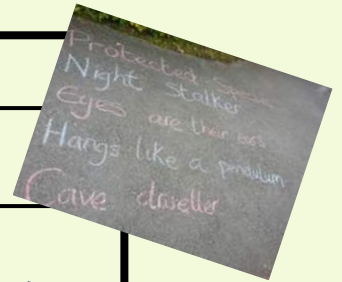 Protected
Night Stalker
Eyes are their
Hangs like a pendulum
Cave dweller